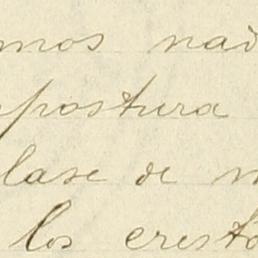 mos nad
postura
lase de m
los cresto